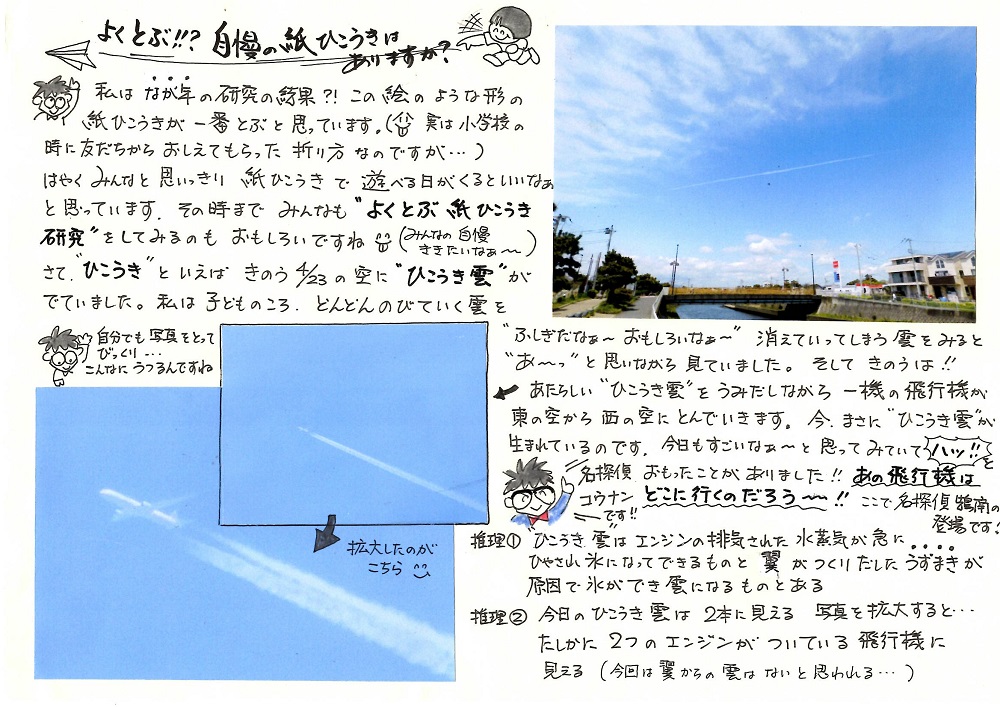 よくとぶ!!? 自慢の紙ひこうきは
ありますか?
私は なが年の研究の結果?! この絵のような形の
紙ひこうきが 一番とぶと思っています。( 実は小学校の
時に友だちから おしえてもらった 折り方 なのですが…)
はやく みんなと 思いっきり 紙ひこうきで 遊べる日がくるといいなぁ
と思っています。その時まで みんなも "よくとぶ 紙ひこうき
研究"をしてみるのも おもしろいですね (みんなの自慢
ききたいなぁ〜)
さて、"ひこうき"といえば きのう 4/23の空に"ひこうき雲"が
でていました。私は 子どものころ、どんどんのびていく雲を
"ふしぎだなぁ〜 おもしろいなぁ〜" 消えていってしまう雲をみると
"あ〜っ"と思いながら 見ていました。そして きのうは!!
自分でも 写真をとって
びっくり…
こんなに うつるんですね
あたらしい "ひこうき雲"をうみだしながら 一機の飛行機が
東の空から 西の空に とんでいきます。今、まさに"ひこうき雲"が
生まれているのです。今日もすごいなぁ〜と思ってみていて ハッ!! と
おもったことが ありました!! あの飛行機は
どこに行くのだろう〜〜!!
名探偵
コウナン
です!!
ここで名探偵 鵠南の
登場です!
拡大したのが
こちら
推理① "ひこうき雲"はエンジンの排気された 水蒸気が急に
ひやされ 氷になってできるものと 翼がつくりだした うずまきが
原因で 氷ができ 雲になるものとある
推理② 今日のひこうき雲は 2本に見える 写真を拡大すると…
たしかに 2つのエンジンが ついている 飛行機に
見える (今回は 翼からの雲は ないと思われる…)